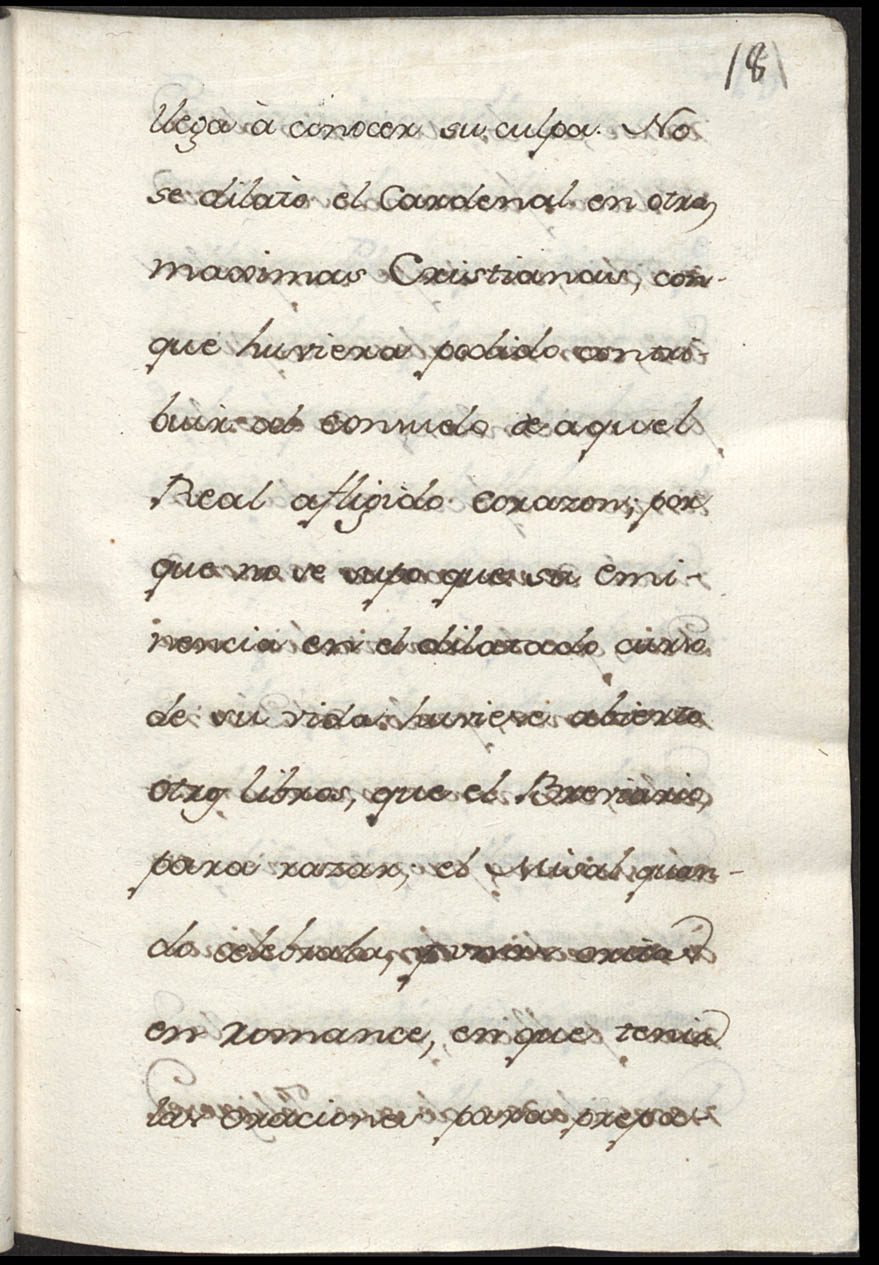 18
llega à conocer su culpa. No
se dilatò el Cardenal en otras
maximas Cristianas, con-
que huviera podido contri-
buir al consuelo de aquel
Real afligido corazon; por
que no se supo que su Emi-
nencia en el dilatado curso
de su vida huviese abierto
otros libros, que el Breviario,
para razar; el Misal quan-
do celebraba, y unas
en romance, en que tenia
las oraciones para prepa-